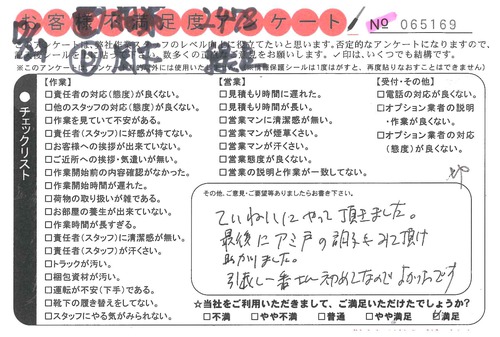 お客様不満足度アンケート
No 065169
アンケートは、弊社作業スタッフのレベル向上に役立てたいと思います。否定的なアンケートになりますので、
✓印は、いくつでも結構です。
チェックリスト
【作業】
□責任者の対応(態度)が良くない。
□他のスタッフの対応(態度)が良くない。
□作業を見ていて不安がある。
□責任者(スタッフ)に好感が持てない。
□お客様への挨拶が出来ていない。
□ご近所への挨拶・気遣いが無い。
□作業開始前の内容確認がなかった。
□作業開始時間が遅れた。
□荷物の取り扱いが雑である。
□お部屋の養生が出来ていない。
□作業時間が長すぎる。
□責任者(スタッフ)に清潔感が無い。
□責任者(スタッフ)が汗くさい。
□トラックが汚い。
□梱包資材が汚い。
□運転が不安(下手)である。
□靴下の履き替えをしてない。
□スタッフにやる気がみられない。
【営業】
□見積もり時間に遅れた。
□見積もり時間が長い。
□営業マンに清潔感が無い。
□営業マンが煙草くさい。
□営業マンが汗くさい。
□営業態度が良くない。
□営業の説明と作業が一致してない。
【受付・その他】
□電話の対応が良くない。
□オプション業者の説明
・作業が良くない。
□オプション業者の対応
(態度)が良くない。
その他、ご意見・ご要望等ありましたらお書き下さい。
ていねいにやって頂きました。
最後にアミ戸の調子をみて頂け
助かりました。
引越し一番さん初めてなので よかったです
☆当社をご利用いただきまして、ご満足いただけたでしょうか?
□不満 □やや不満 □普通 □やや満足 ☑満足